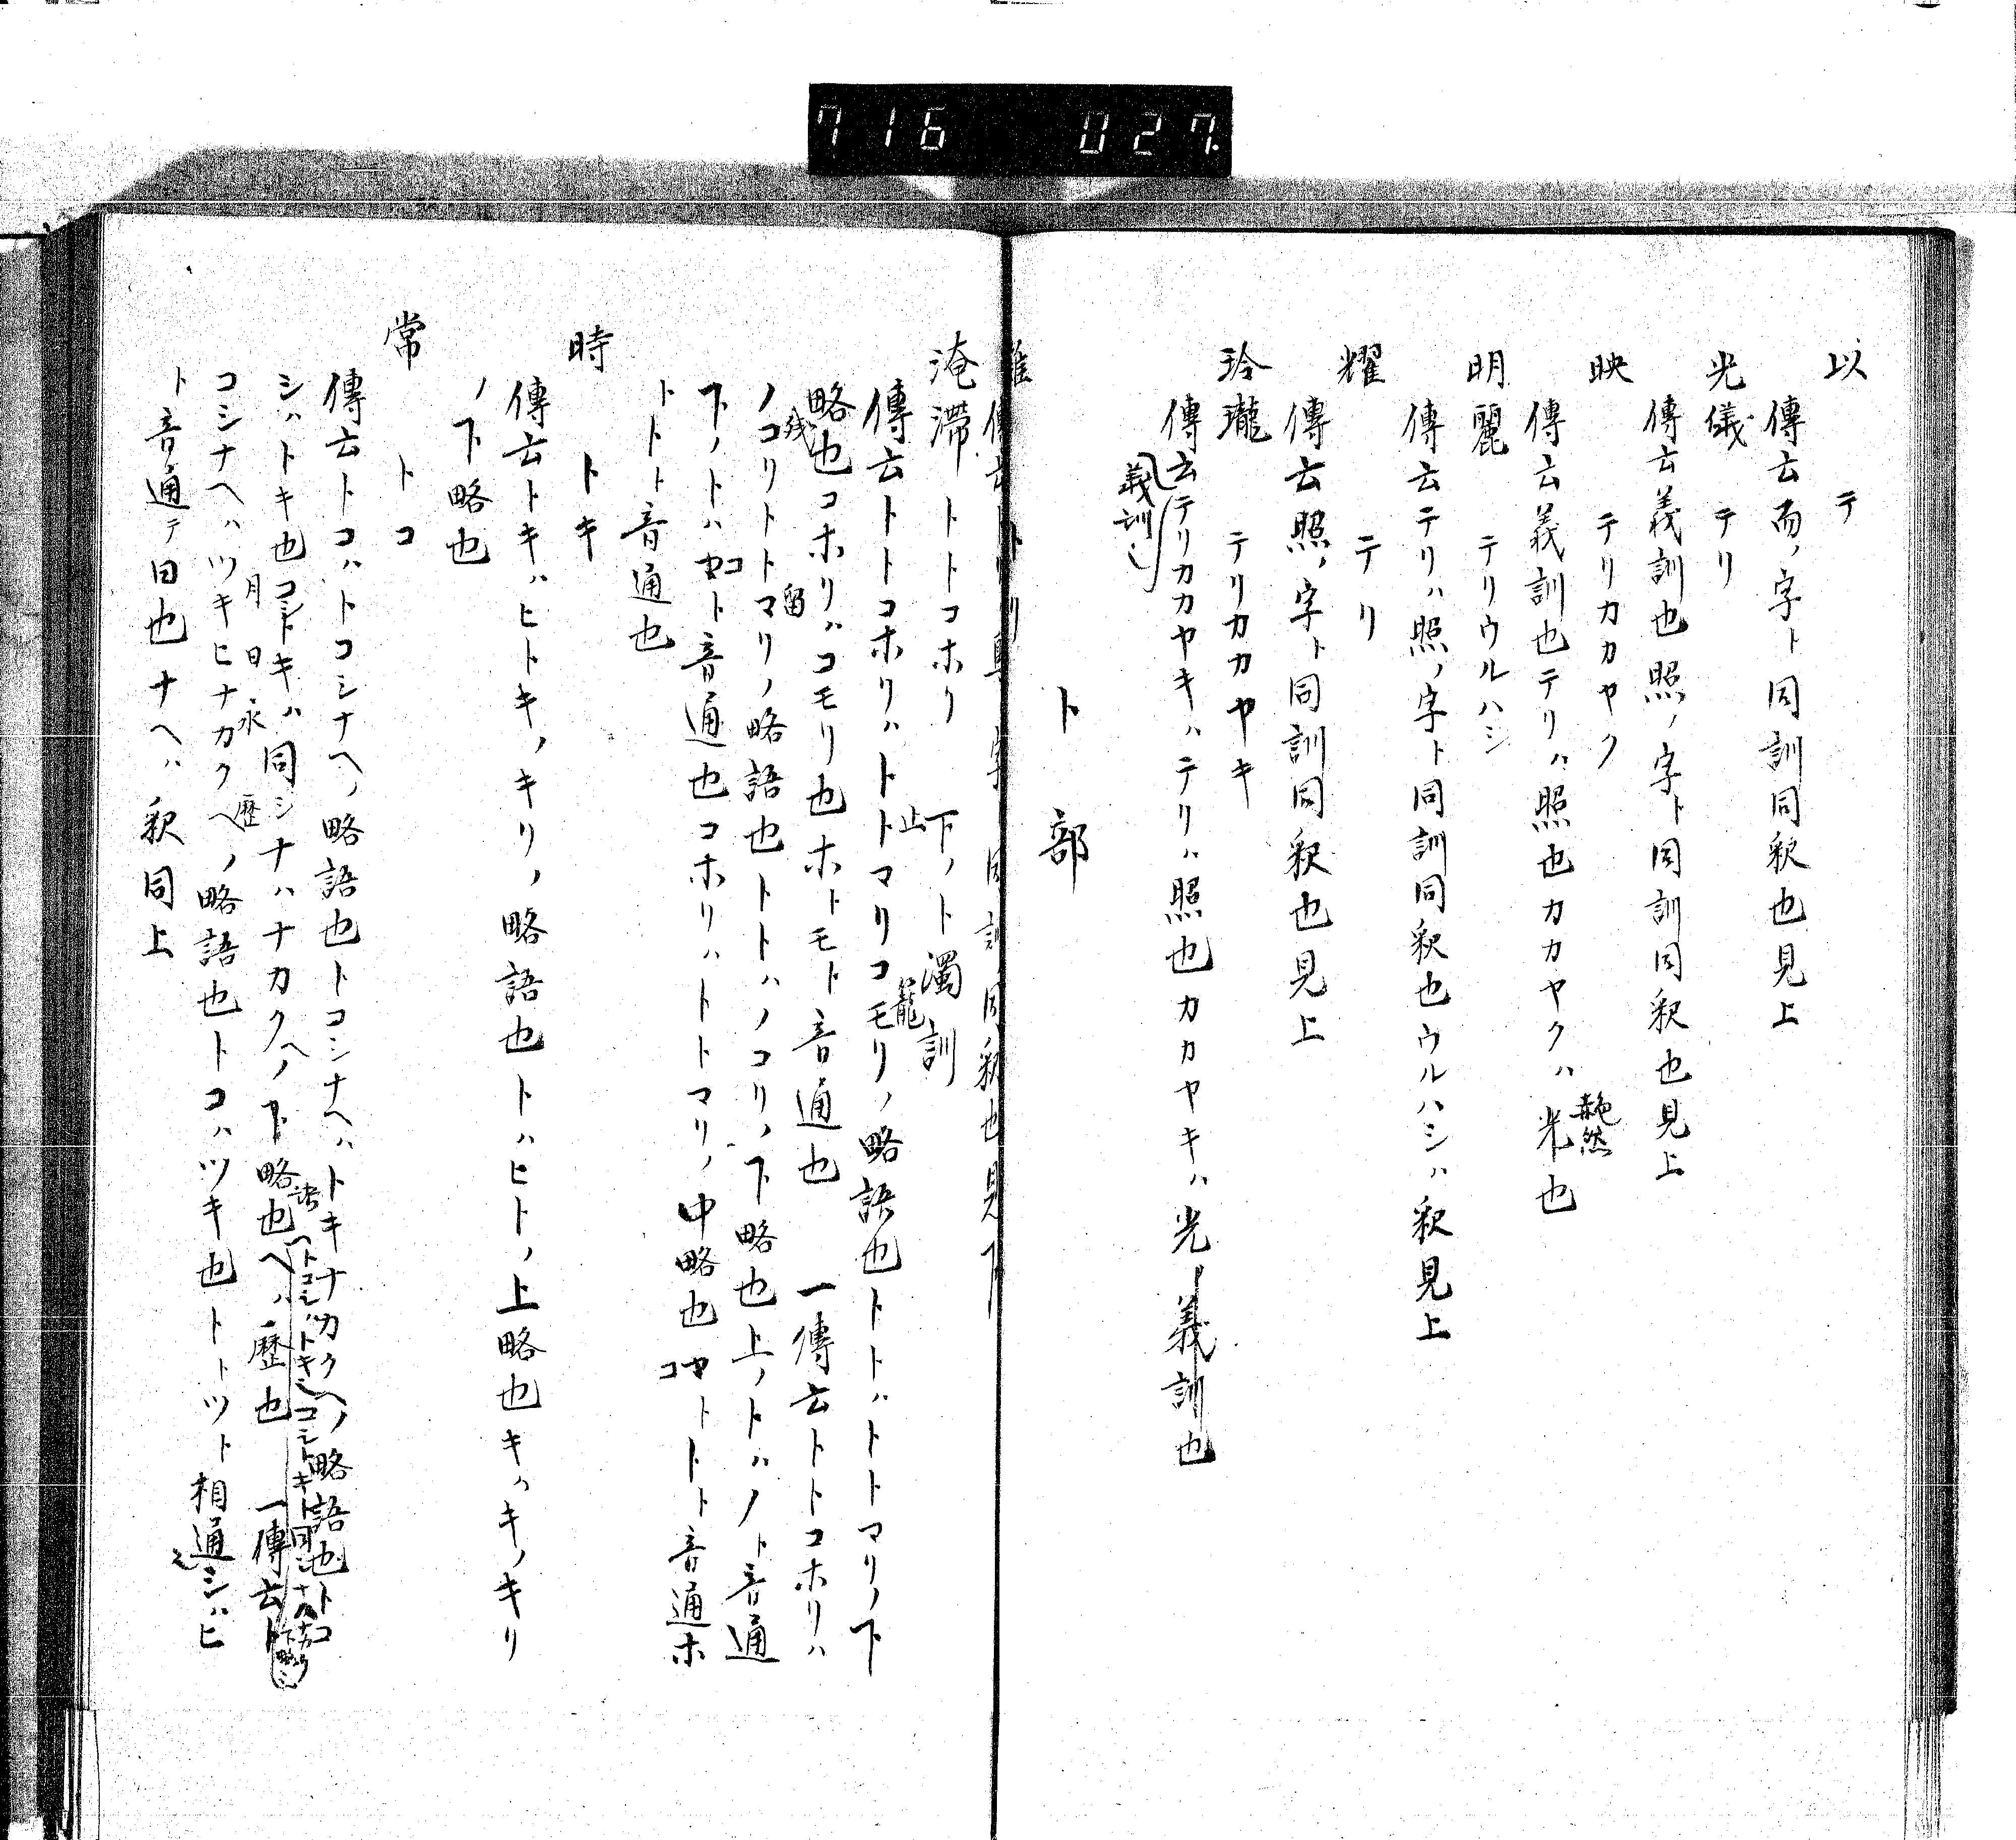 716 027.
以 テ
傳云而ノ字ト同訓同釈也見上
光儀 テリ
傳云義訓也照ノ字ト同訓同釈也見上
映 テリカカヤク
傳云義訓也テリハ照也カカヤクハ光也
赫然
明麗 テリウルハシ
傳云テリハ照ノ字ト同訓同釈也ウルハシハ釈見上
耀 テリ
傳云照ノ字ト同訓同釈也見上
玲瓏 テリカカヤキ
傳云テリカカヤキハテリハ照也カカヤキハ光ノ義訓也
義訓
ト部
淹滞 トトコホリ 下ノト濁訓
傳云トトコホリハトトマリコモリノ略語也トトハトトマリノ下
止 籠
略也コホリハコモリ也ホトモト音通也 一傳云トトコホリハ
残 留
ノコリトトマリノ略語也トトハノコリノ下略也上ノトハノト音通
下ノトハコト音通也コホリハトトマリノ中略也コトト音通ホ
トトト音通也
時 トキ
傳云トキハヒトキノキリノ略語也トハヒトノ上略也キハキノキリ
ノ下略也
常 トコ
傳云トコハトコシナヘノ略語也トコシナヘハトキナカクヘノ略語也トコ
シハトキ也コシトキハ同シナハナカクヘノ下略也ヘハ歴也 一傳云ト
月 日 永 歴
コシナヘハツキヒナカクヘノ略語也トコハツキ也トトツト相通シハヒ
ト音通テ日也ナヘハ釈同上